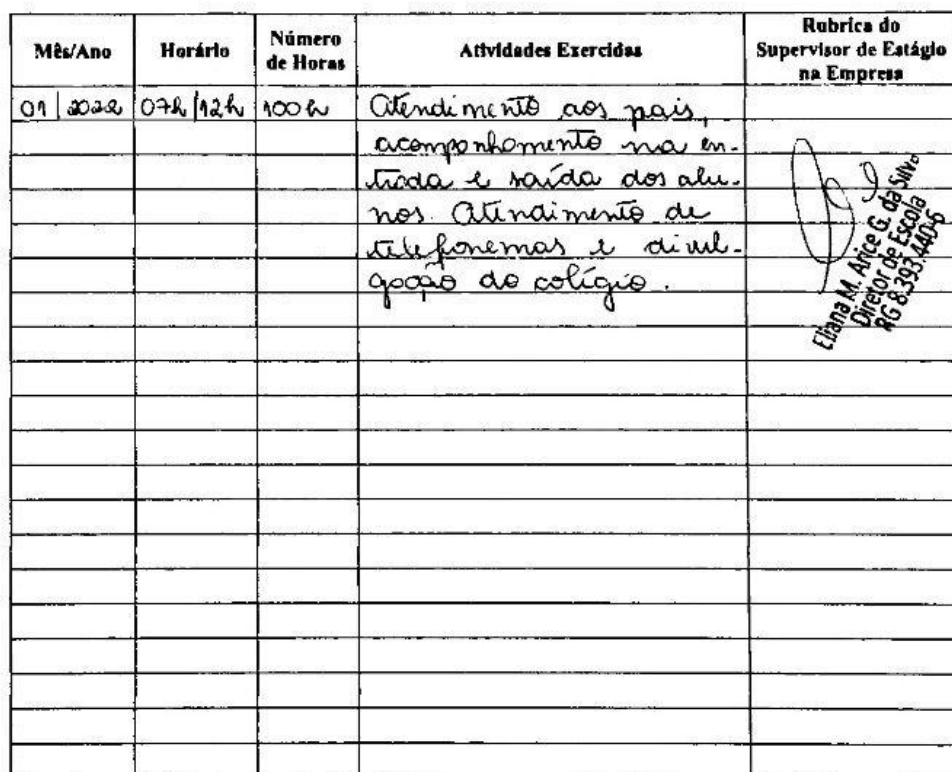 Mês/Ano Horário Número de Horas Atividades Exercidas Rubrica do Supervisor de Estágio na Empresa
01/2022 07h/12h 100h Atendimento aos pais,
acompanhamento na en-
trada e saída dos alu-
nos. Atendimento de
telefonemas e divul-
gação do colégio.
Eliana M. Arice G. da Silva
Diretor de Escola
RG 8.393.440-6